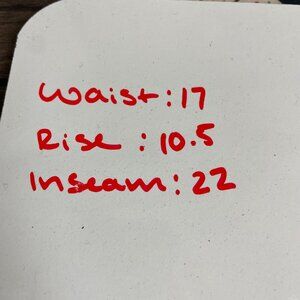 Waist: 17
Rise : 10.5
Inseam: 22